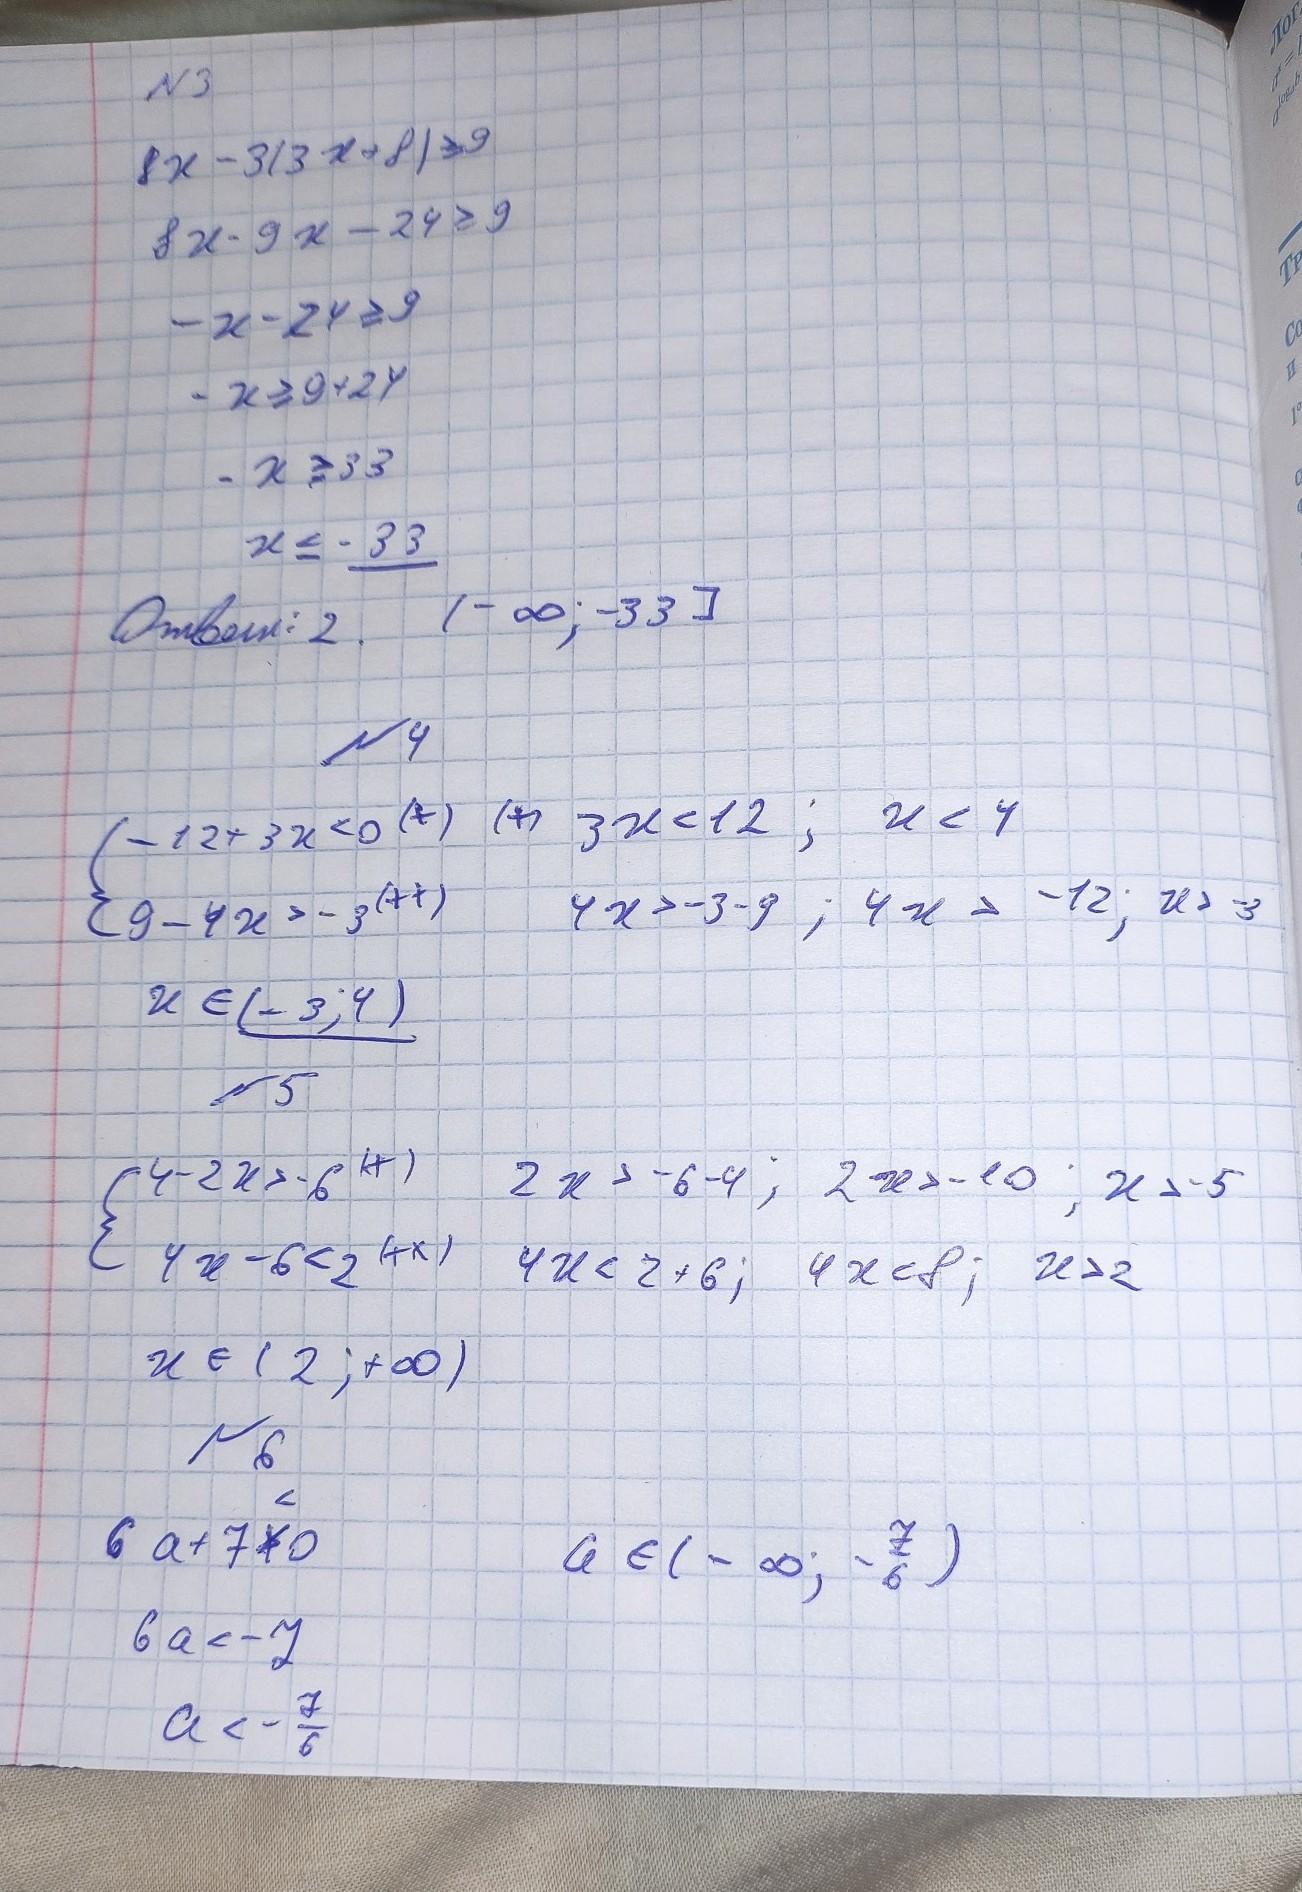 N3
8x - 3(3x + 8) ≥ 9
8x - 9x - 24 ≥ 9
- x - 24 ≥ 9
- x ≥ 9 + 24
- x ≥ 33
x ≤ - 33
Ответ: 2. (- ∞; -33]
N4
{ -12 + 3x < 0 (*) (*) 3x < 12; x < 4
9 - 4x > -3 (**) 4x > -3 - 9; 4x > -12; x > -3
x ∈ (-3; 4)
N5
{ 4 - 2x > -6 (*) 2x > -6 - 4; 2x > -10; x > -5
4x - 6 < 2 (**) 4x < 2 + 6; 4x < 8; x > 2
x ∈ (2; +∞)
N6
<
6a + 7 < 0 a ∈ (- ∞; - 7/6)
6a < -7
a < - 7/6
Лог
Тр
Со
и
1°